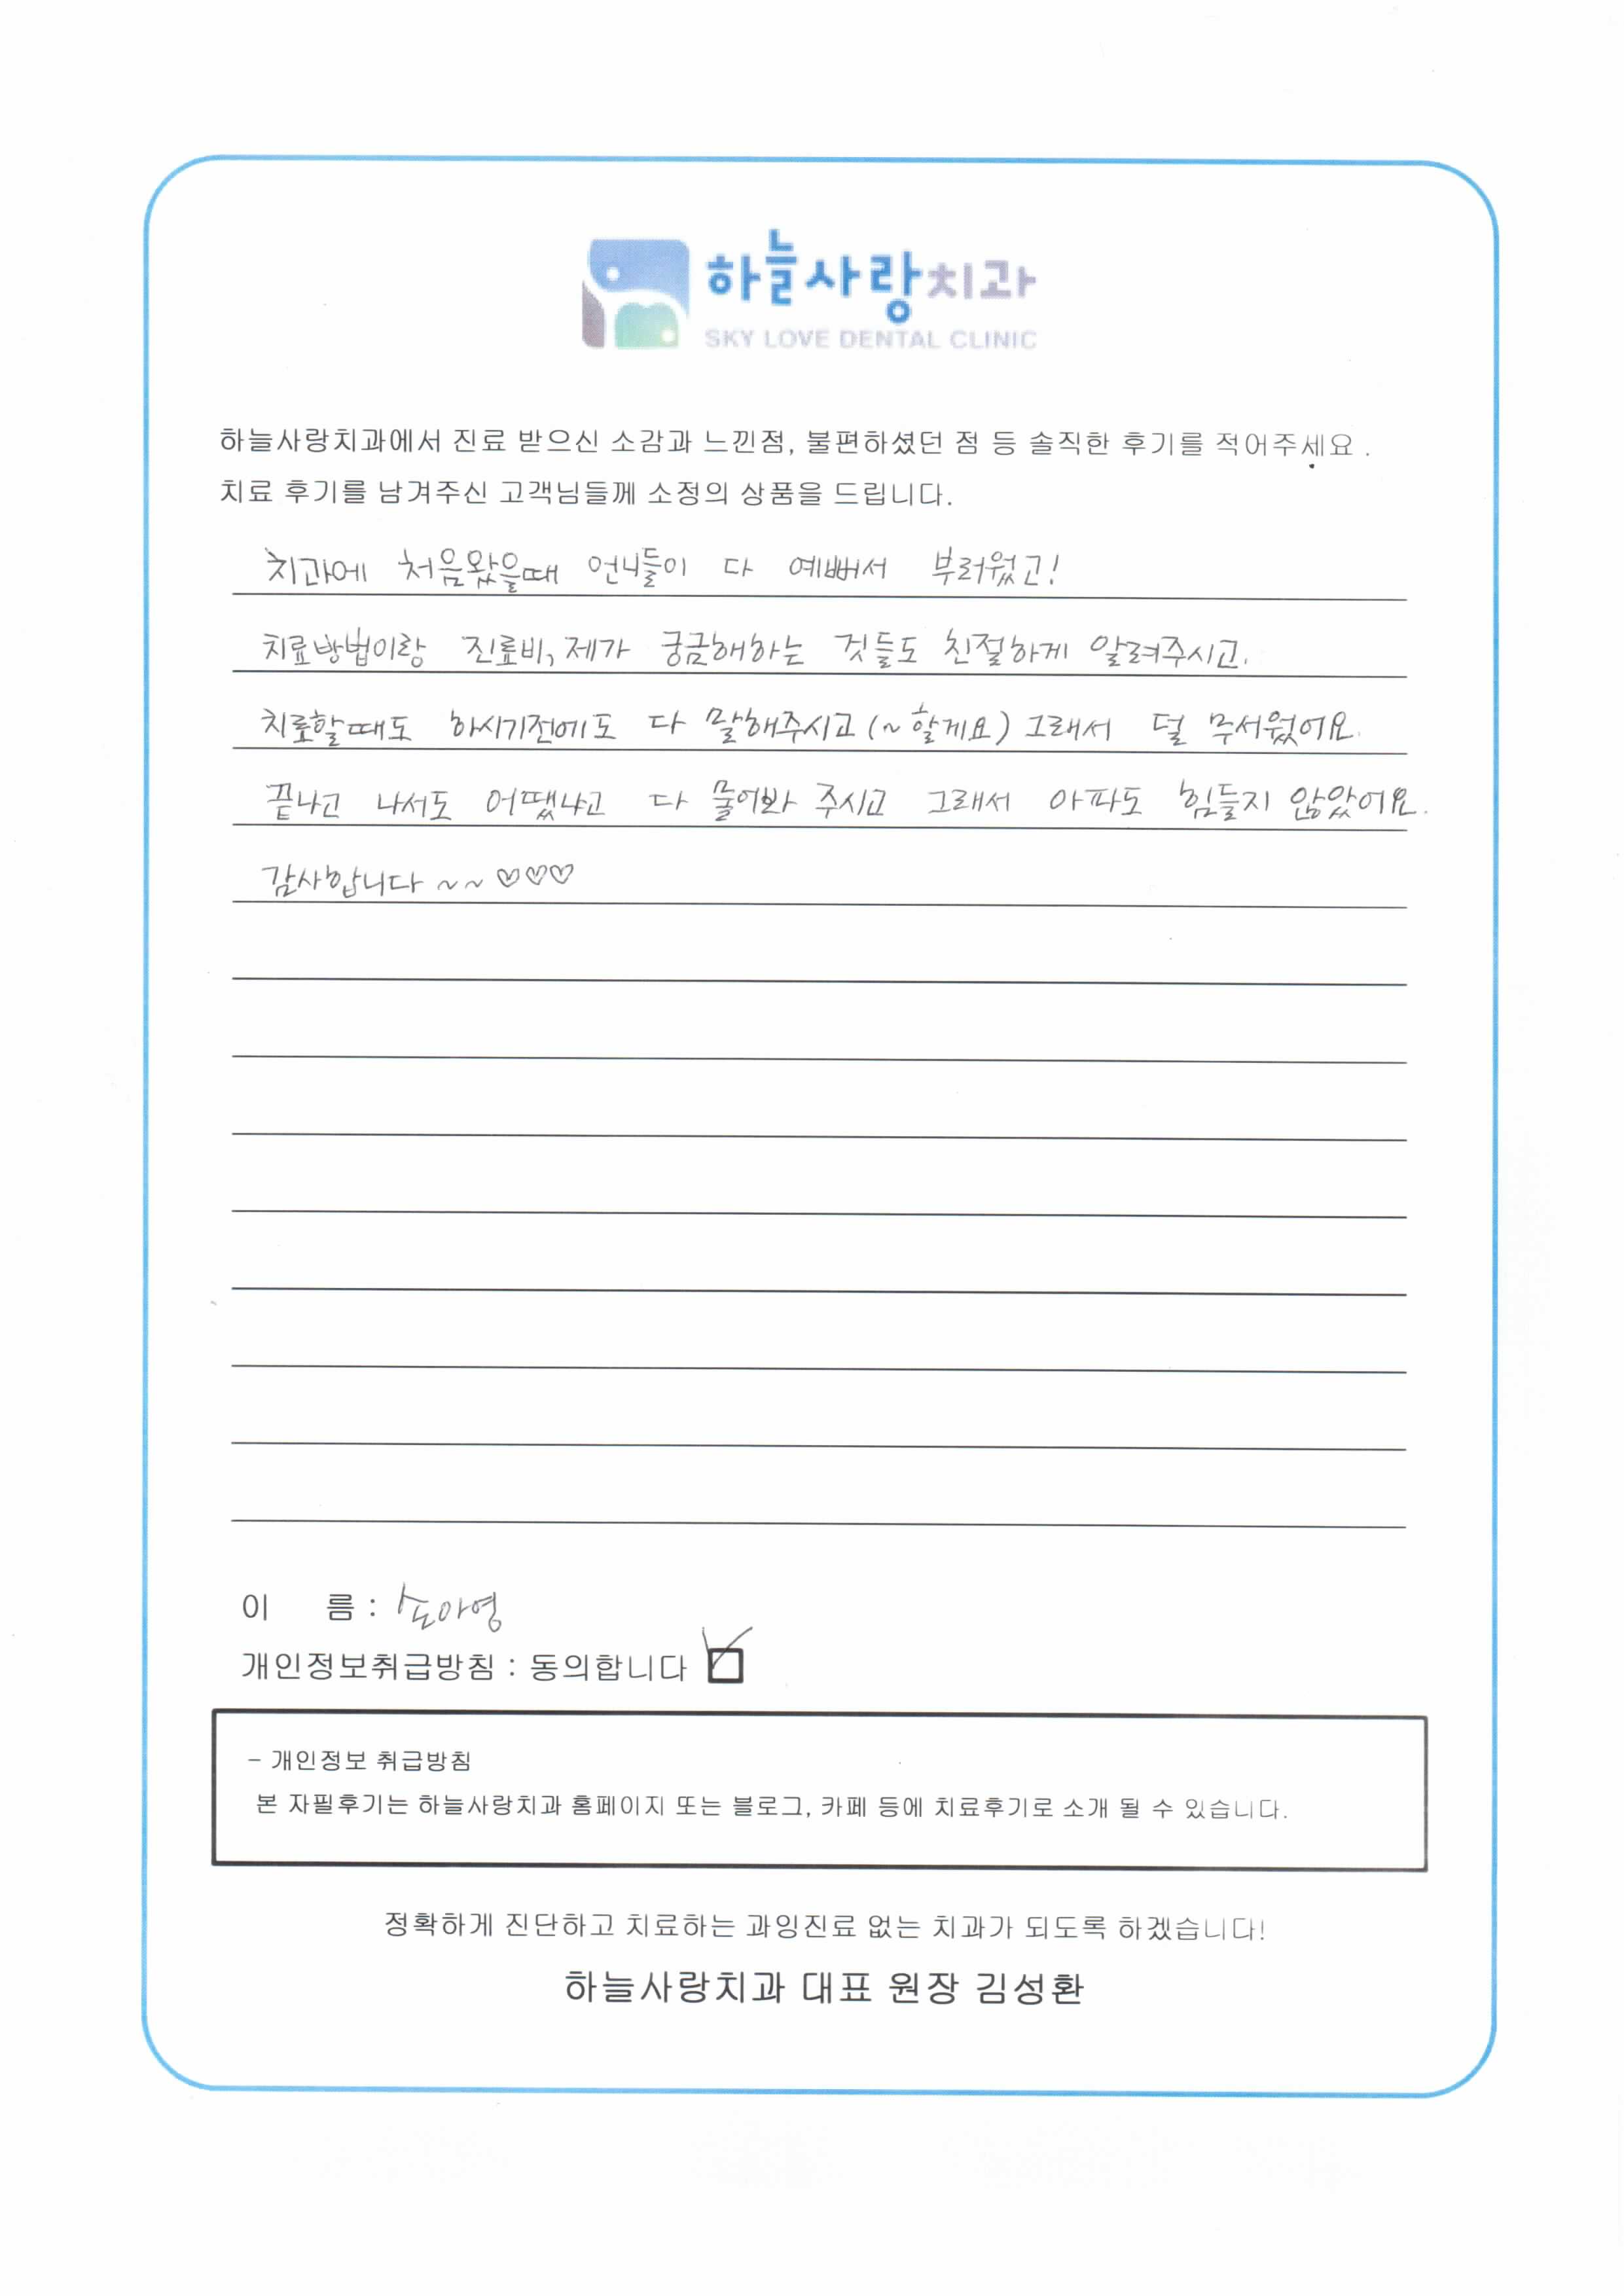 하늘사랑치과
SKY LOVE DENTAL CLINIC
하늘사랑치과에서 진료 받으신 소감과 느낀점, 불편하셨던 점 등 솔직한 후기를 적어주세요.
치료 후기를 남겨주신 고객님들께 소정의 상품을 드립니다.
치과에 처음왔을때 언니들이 다 예뻐서 부러웠고!
치료방법이랑 진료비, 제가 궁금해하는 것들도 친절하게 알려주시고.
치료할때도 하시기전에도 다 말해주시고 (~할게요) 그래서 덜 무서웠어요.
끝나고 나서도 어땠냐고 다 물어봐 주시고 그래서 아파도 힘들지 않았어요.
감사합니다 ~~ ♡♡♡
이 름 : 손아영
개인정보취급방침 : 동의합니다 ☑
- 개인정보 취급방침
본 자필후기는 하늘사랑치과 홈페이지 또는 블로그, 카페 등에 치료후기로 소개 될 수 있습니다.
정확하게 진단하고 치료하는 과잉진료 없는 치과가 되도록 하겠습니다!
하늘사랑치과 대표 원장 김성환